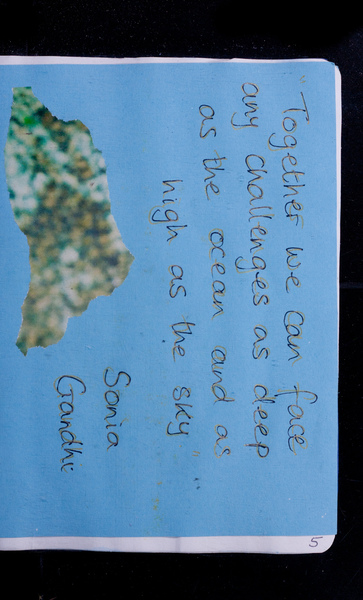 "Together we can face
any challenges as deep
as the ocean and as
high as the sky"
Sonia
Gandhi
5